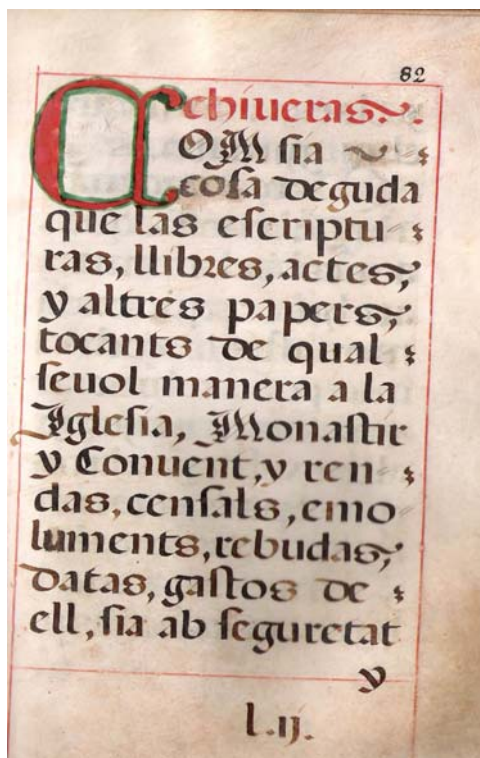 82
Archiueras.
OM ſia
coſa deguda
que las eſcriptu
ras, llibres, actes,
y altres papers,
tocants de qual
ſeuol manera a la
Igleſia, Monaſtir
y Conuent, y ren
das, cenſals, emo
luments, rebudas,
datas, gaſtos de
ell, ſia ab ſeguretat
y
l.ij.